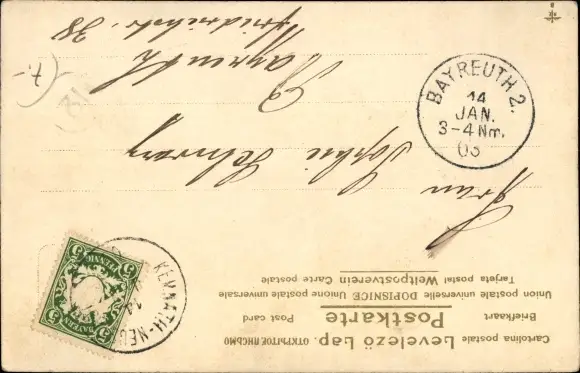 Cartolina postale Levelező Lap. ОТКРЫТОЕ ПИСЬМО
Briefkaart Postkarte Post card
Union postale universelle DOPISNICE Unione postale universale
Tarjeta postal Weltpostverein Carte postale
Frau Sophie Schwarz
Bayreuth
38
BAYREUTH 2.
14
JAN.
3-4 Nm.
03
KEMNATH-NEU
14
5 PFENNIG 5
BAYERN